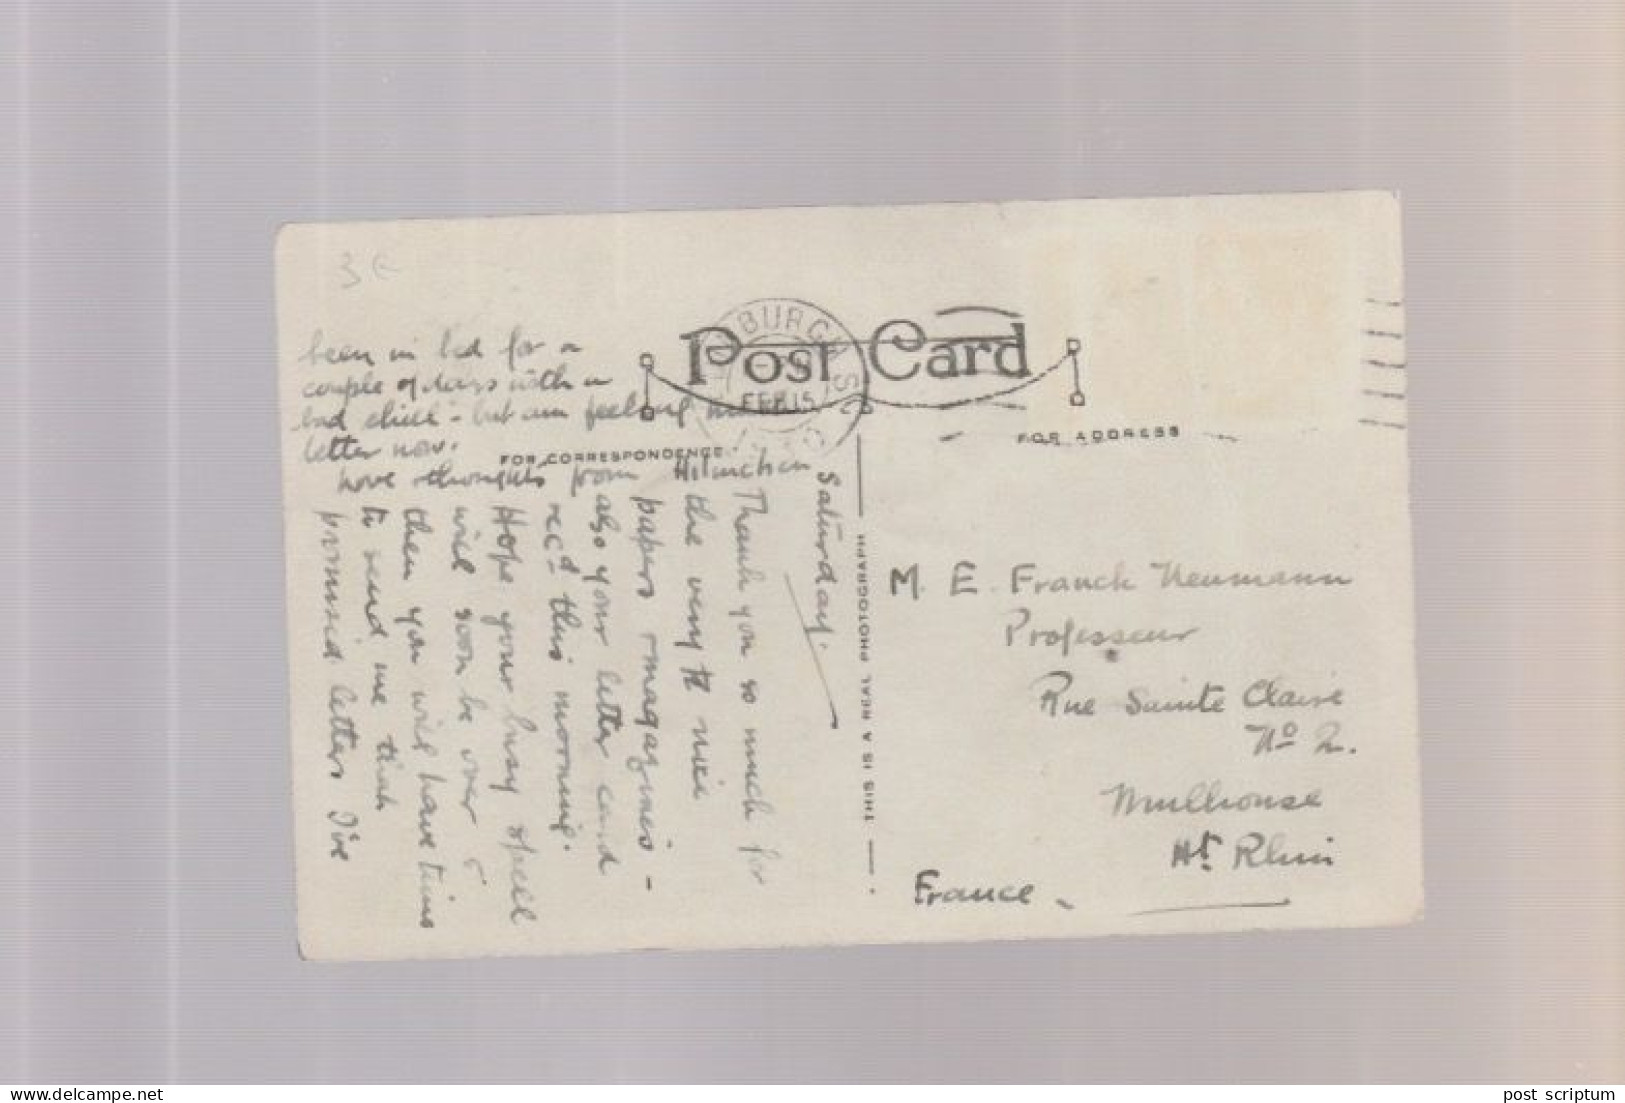 3 €
POST CARD
BURGAS
FEB 15
FOR CORRESPONDENCE
FOR ADDRESS
THIS IS A REAL PHOTOGRAPH
Saturday.
Thank you so much for
the very nice
papers + magazines -
also your letter card
recd this morning.
Hope your busy spell
will soon be over &
then you will have time
to send me that
promised letter I've
been in bed for a
couple of days with a
bad chill - but am feeling
better now.
Love + thoughts from
M. E. Franck Neumann
Professeur
Rue Sainte Claire
No 2.
Mulhouse
Ht. Rhin
France
3102.nosnibor
post_scriptum